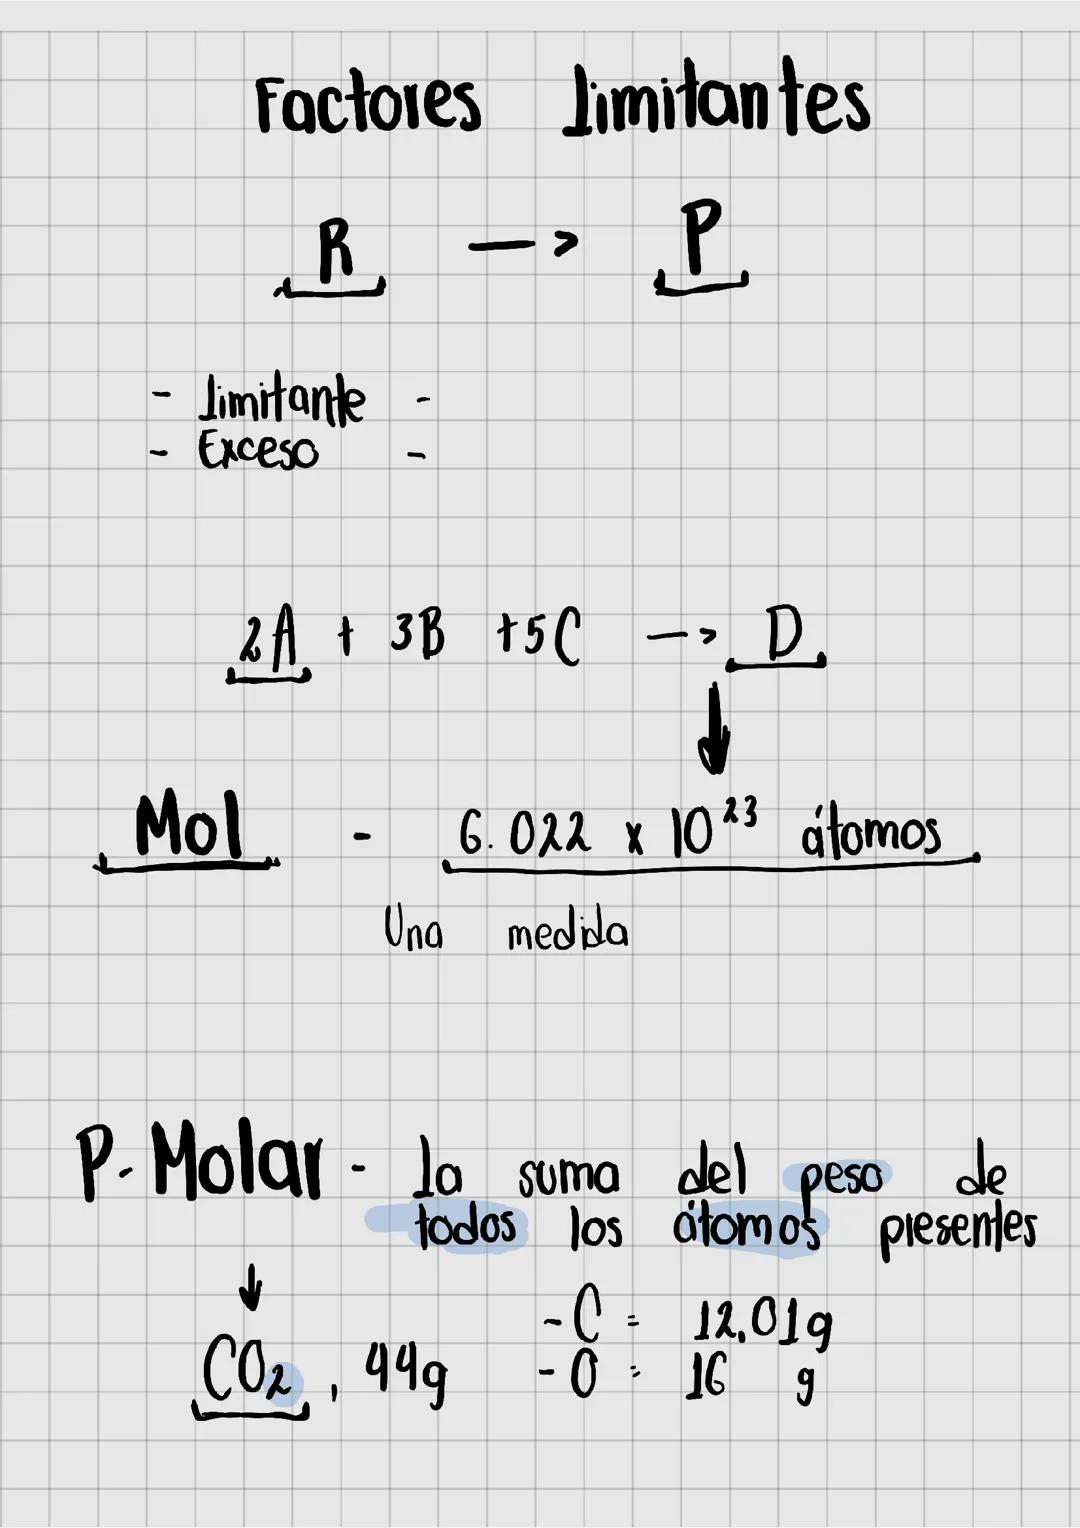 Factores limitantes
R -> P
- limitante -
- Exceso -
2A + 3B +5C -> D
↓
Mol - 6.022 x 10²³ átomos
Una medida
P. Molar - la suma del peso de
todos los átomos presentes
↓
- C = 12.01g
CO₂, 44g - O = 16 g